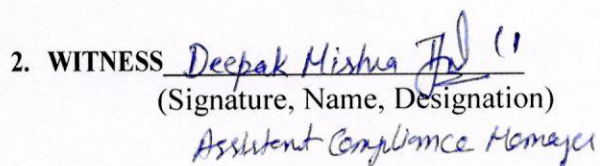 2. WITNESS Deepak Mishra
(Signature, Name, Designation)
Assistent Compliance Maneger